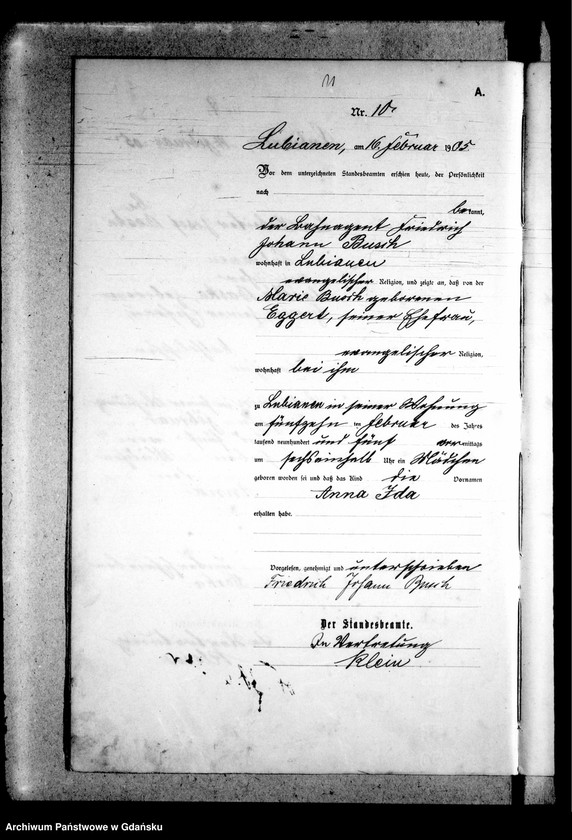 11
A.
Nr. 10.
Lubianen, am 16. Februar 1905.
Vor dem unterzeichneten Standesbeamten erschien heute, der Persönlichkeit
nach
bekannt,
der Bahnagent Friedrich
Johann Busch
wohnhaft in Lubianen
evangelischer Religion, und zeigte an, daß von der
Marie Busch geborenen
Eggert, seiner Ehefrau,
evangelischer Religion,
wohnhaft bei ihm
zu Lubianen in seiner Wohnung
am fünfzehn ten Februar des Jahres
tausend neunhundert und fünf vormittags
um sechseinhalb Uhr ein Mädchen
geboren worden sei und daß das Kind die Vornamen
Anna Ida
erhalten habe.
Vorgelesen, genehmigt und unterschrieben
Friedrich Johann Busch
Der Standesbeamte.
In Vertretung
Klein
Archiwum Państwowe w Gdańsku